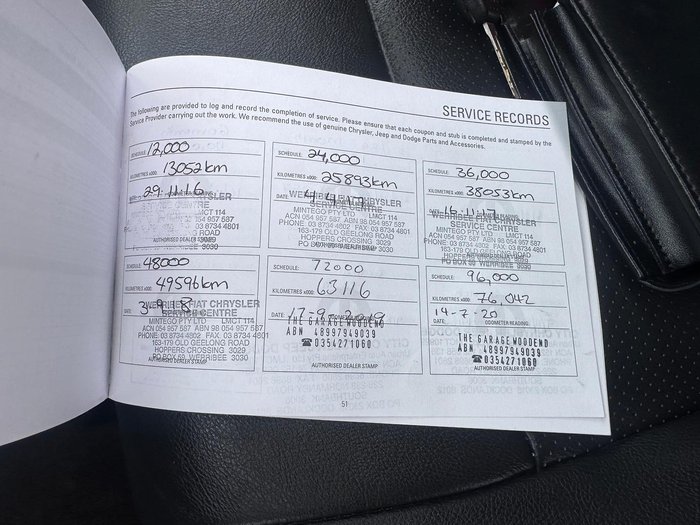 SERVICE RECORDS
The following are provided to log and record the completion of service. Please ensure that each coupon and stub is completed and stamped by the
Service Provider carrying out the work. We recommend the use of genuine Chrysler, Jeep and Dodge Parts and Accessories.
SCHEDULE: 12,000
KILOMETRES x000: 13052km
29.11.16
CENTRE
LMCT 114
AUTHORISED DEALER STAMP
SCHEDULE: 24,000
KILOMETRES x000: 25893km
DATE: 4.4.17
SERVICE CENTRE
MINTEGO PTY LTD LMCT 114
ACN 054 957 587 ABN 98 054 957 587
PHONE: 03 8734 4802 FAX: 03 8734 4801
163-179 OLD GEELONG ROAD
HOPPERS CROSSING 3029
SCHEDULE: 36,000
KILOMETRES x000: 38053km
16.11.17
WERRIBEE FIAT CHRYSLER
SERVICE CENTRE
MINTEGO PTY LTD LMCT 114
ACN 054 957 587 ABN 98 054 957 587
PHONE: 03 8734 4802 FAX: 03 8734 4801
HOPPERS CROSSING 3029
PO BOX 59 WERRIBEE 3030
SCHEDULE: 48000
KILOMETRES x000: 49596km
DATE:
WERRIBEE FIAT CHRYSLER
SERVICE CENTRE
MINTEGO PTY LTD LMCT 114
ACN 054 957 587 ABN 98 054 957 587
PHONE: 03 8734 4802 FAX: 03 8734 4801
163-179 OLD GEELONG ROAD
HOPPERS CROSSING 3029
PO BOX 59 WERRIBEE 3030
AUTHORISED DEALER STAMP
SCHEDULE: 72000
KILOMETRES x000: 63116
DATE: 17-9-2019
THE GARAGE WOODEND
ABN 48997949039
☎0354271060
AUTHORISED DEALER STAMP
SCHEDULE: 96,000
KILOMETRES x000: 76,042
DATE: 14-7-20 ODOMETER READING:
THE GARAGE WOODEND
ABN 48997949039
☎0354271060
AUTHORISED DEALER STAMP
51